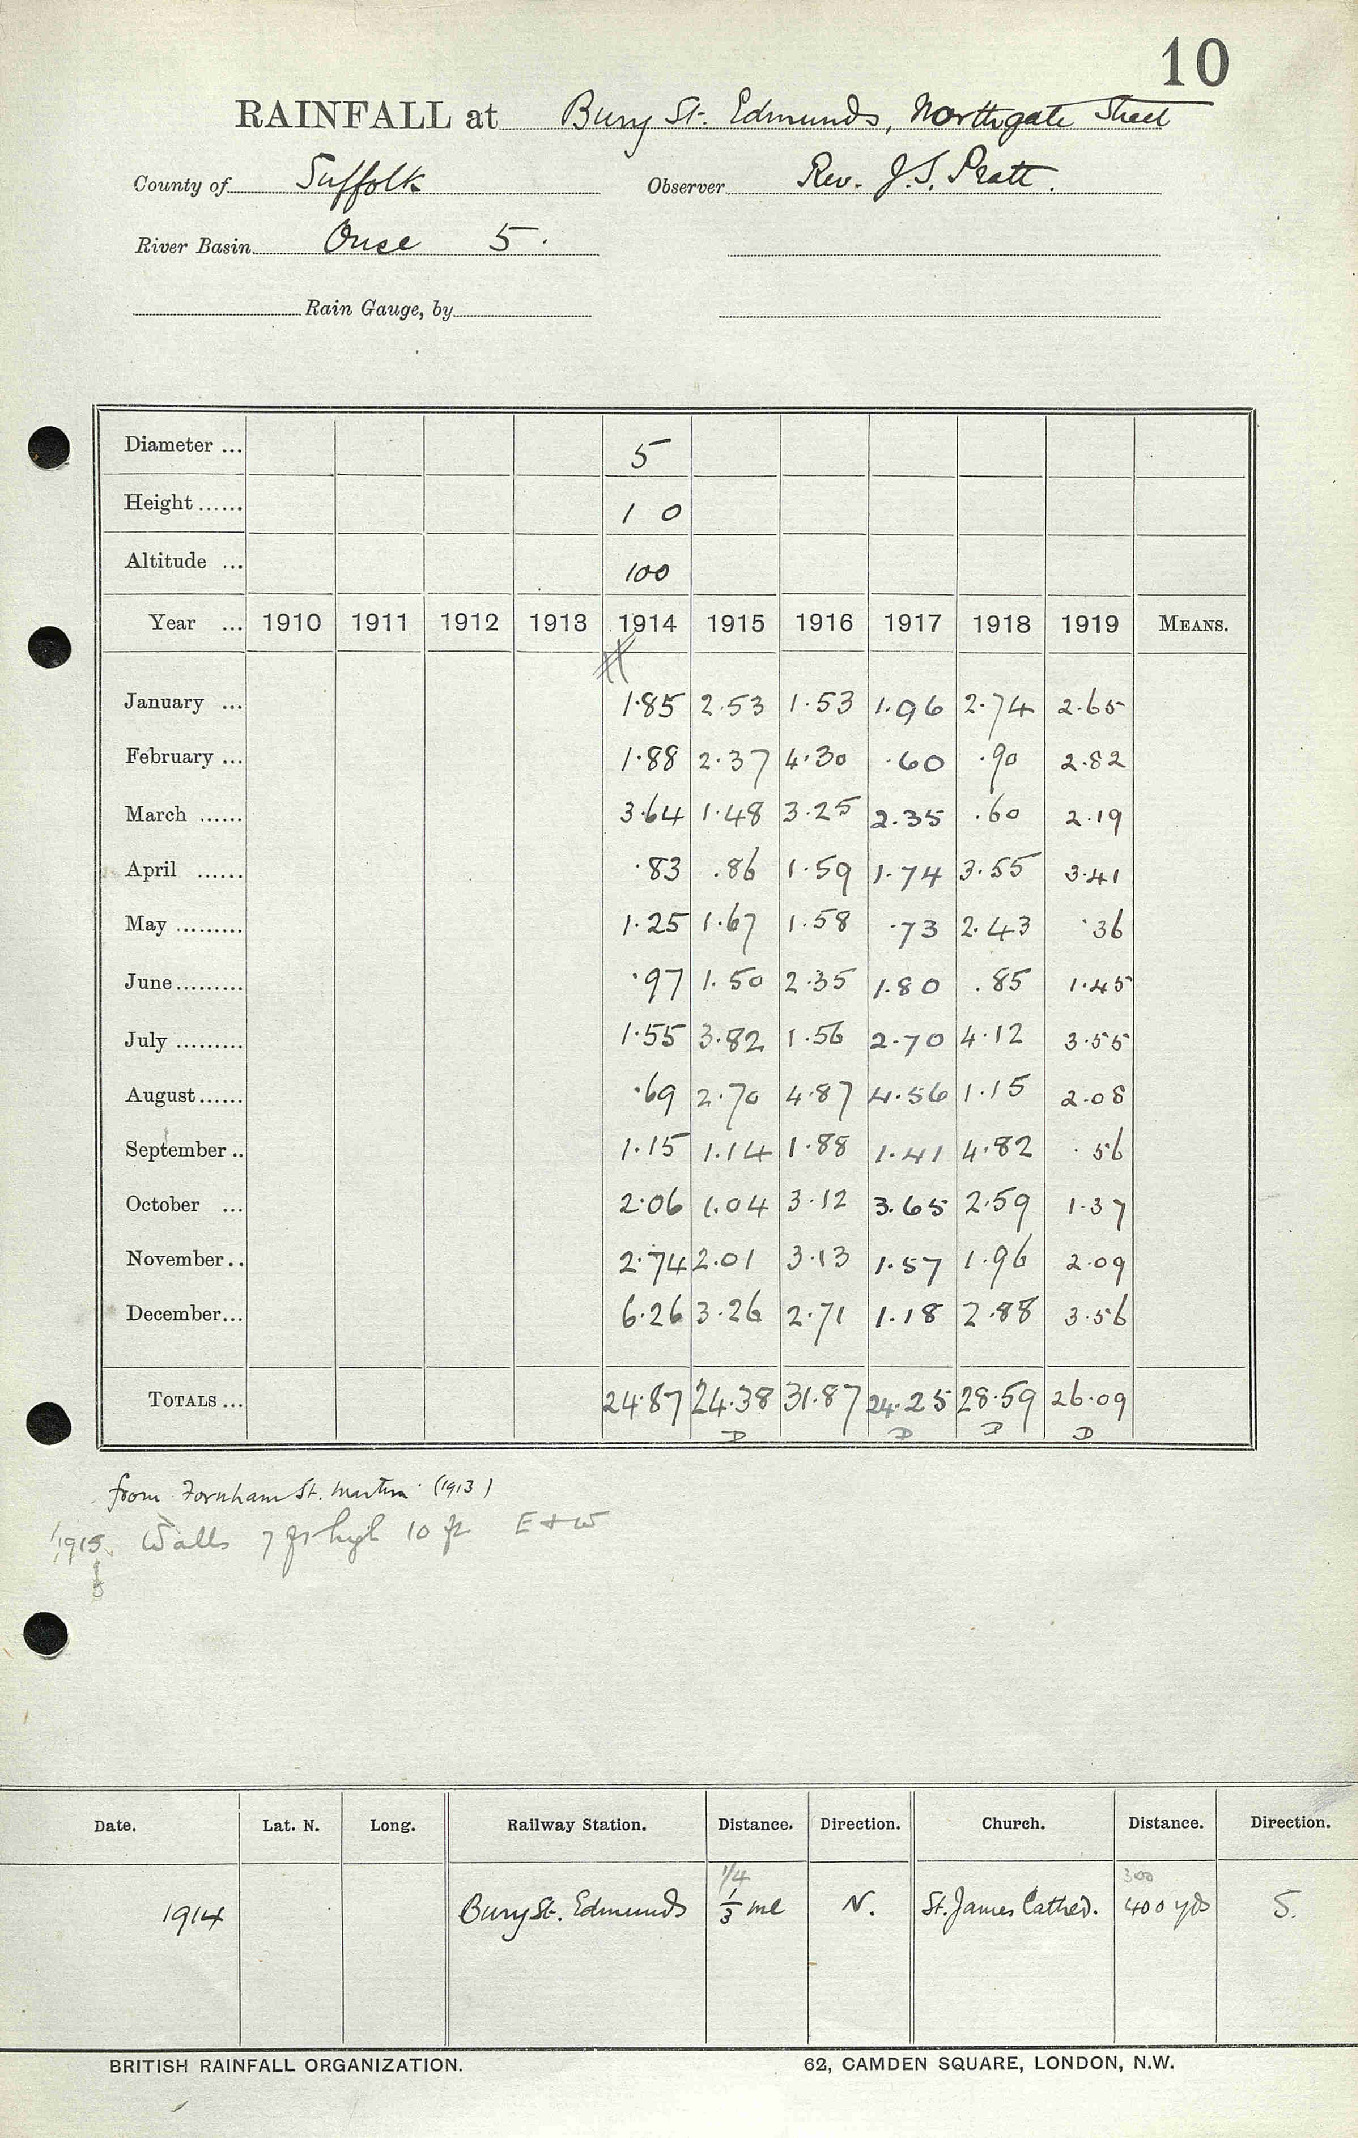 10
RAINFALL at Bury St. Edmunds, Northgate Street
County of Suffolk Observer Rev. J. S. Pratt.
River Basin Ouse 5.
Rain Gauge, by
Diameter ... 5
Height ...... 1 0
Altitude ... 100
Year ... 1910 1911 1912 1913 1914 1915 1916 1917 1918 1919 MEANS.
January ... 1.85 2.53 1.53 1.96 2.74 2.65
February ... 1.88 2.37 4.30 .60 .90 2.82
March ...... 3.64 1.48 3.25 2.35 .60 2.19
April ...... .83 .86 1.59 1.74 3.55 3.41
May ......... 1.25 1.67 1.58 .73 2.43 .36
June ......... .97 1.50 2.35 1.80 .85 1.45
July ......... 1.55 3.82 1.56 2.70 4.12 3.55
August ...... .69 2.70 4.87 4.56 1.15 2.08
September .. 1.15 1.14 1.88 1.41 4.82 .56
October ... 2.06 1.04 3.12 3.65 2.59 1.37
November .. 2.74 2.01 3.13 1.57 1.96 2.09
December... 6.26 3.26 2.71 1.18 2.88 3.56
TOTALS ... 24.87 24.38 31.87 24.25 28.59 26.09
D D D D
from Fornham St. Martin (1913)
1915 Walls 7 ft high 10 ft E + W
Date. Lat. N. Long. Railway Station. Distance. Direction. Church. Distance. Direction.
1/4 300
1914 Bury St. Edmunds 1/3 ml N. St. James Cathed. 400 yds S.
BRITISH RAINFALL ORGANIZATION. 62, CAMDEN SQUARE, LONDON, N.W.